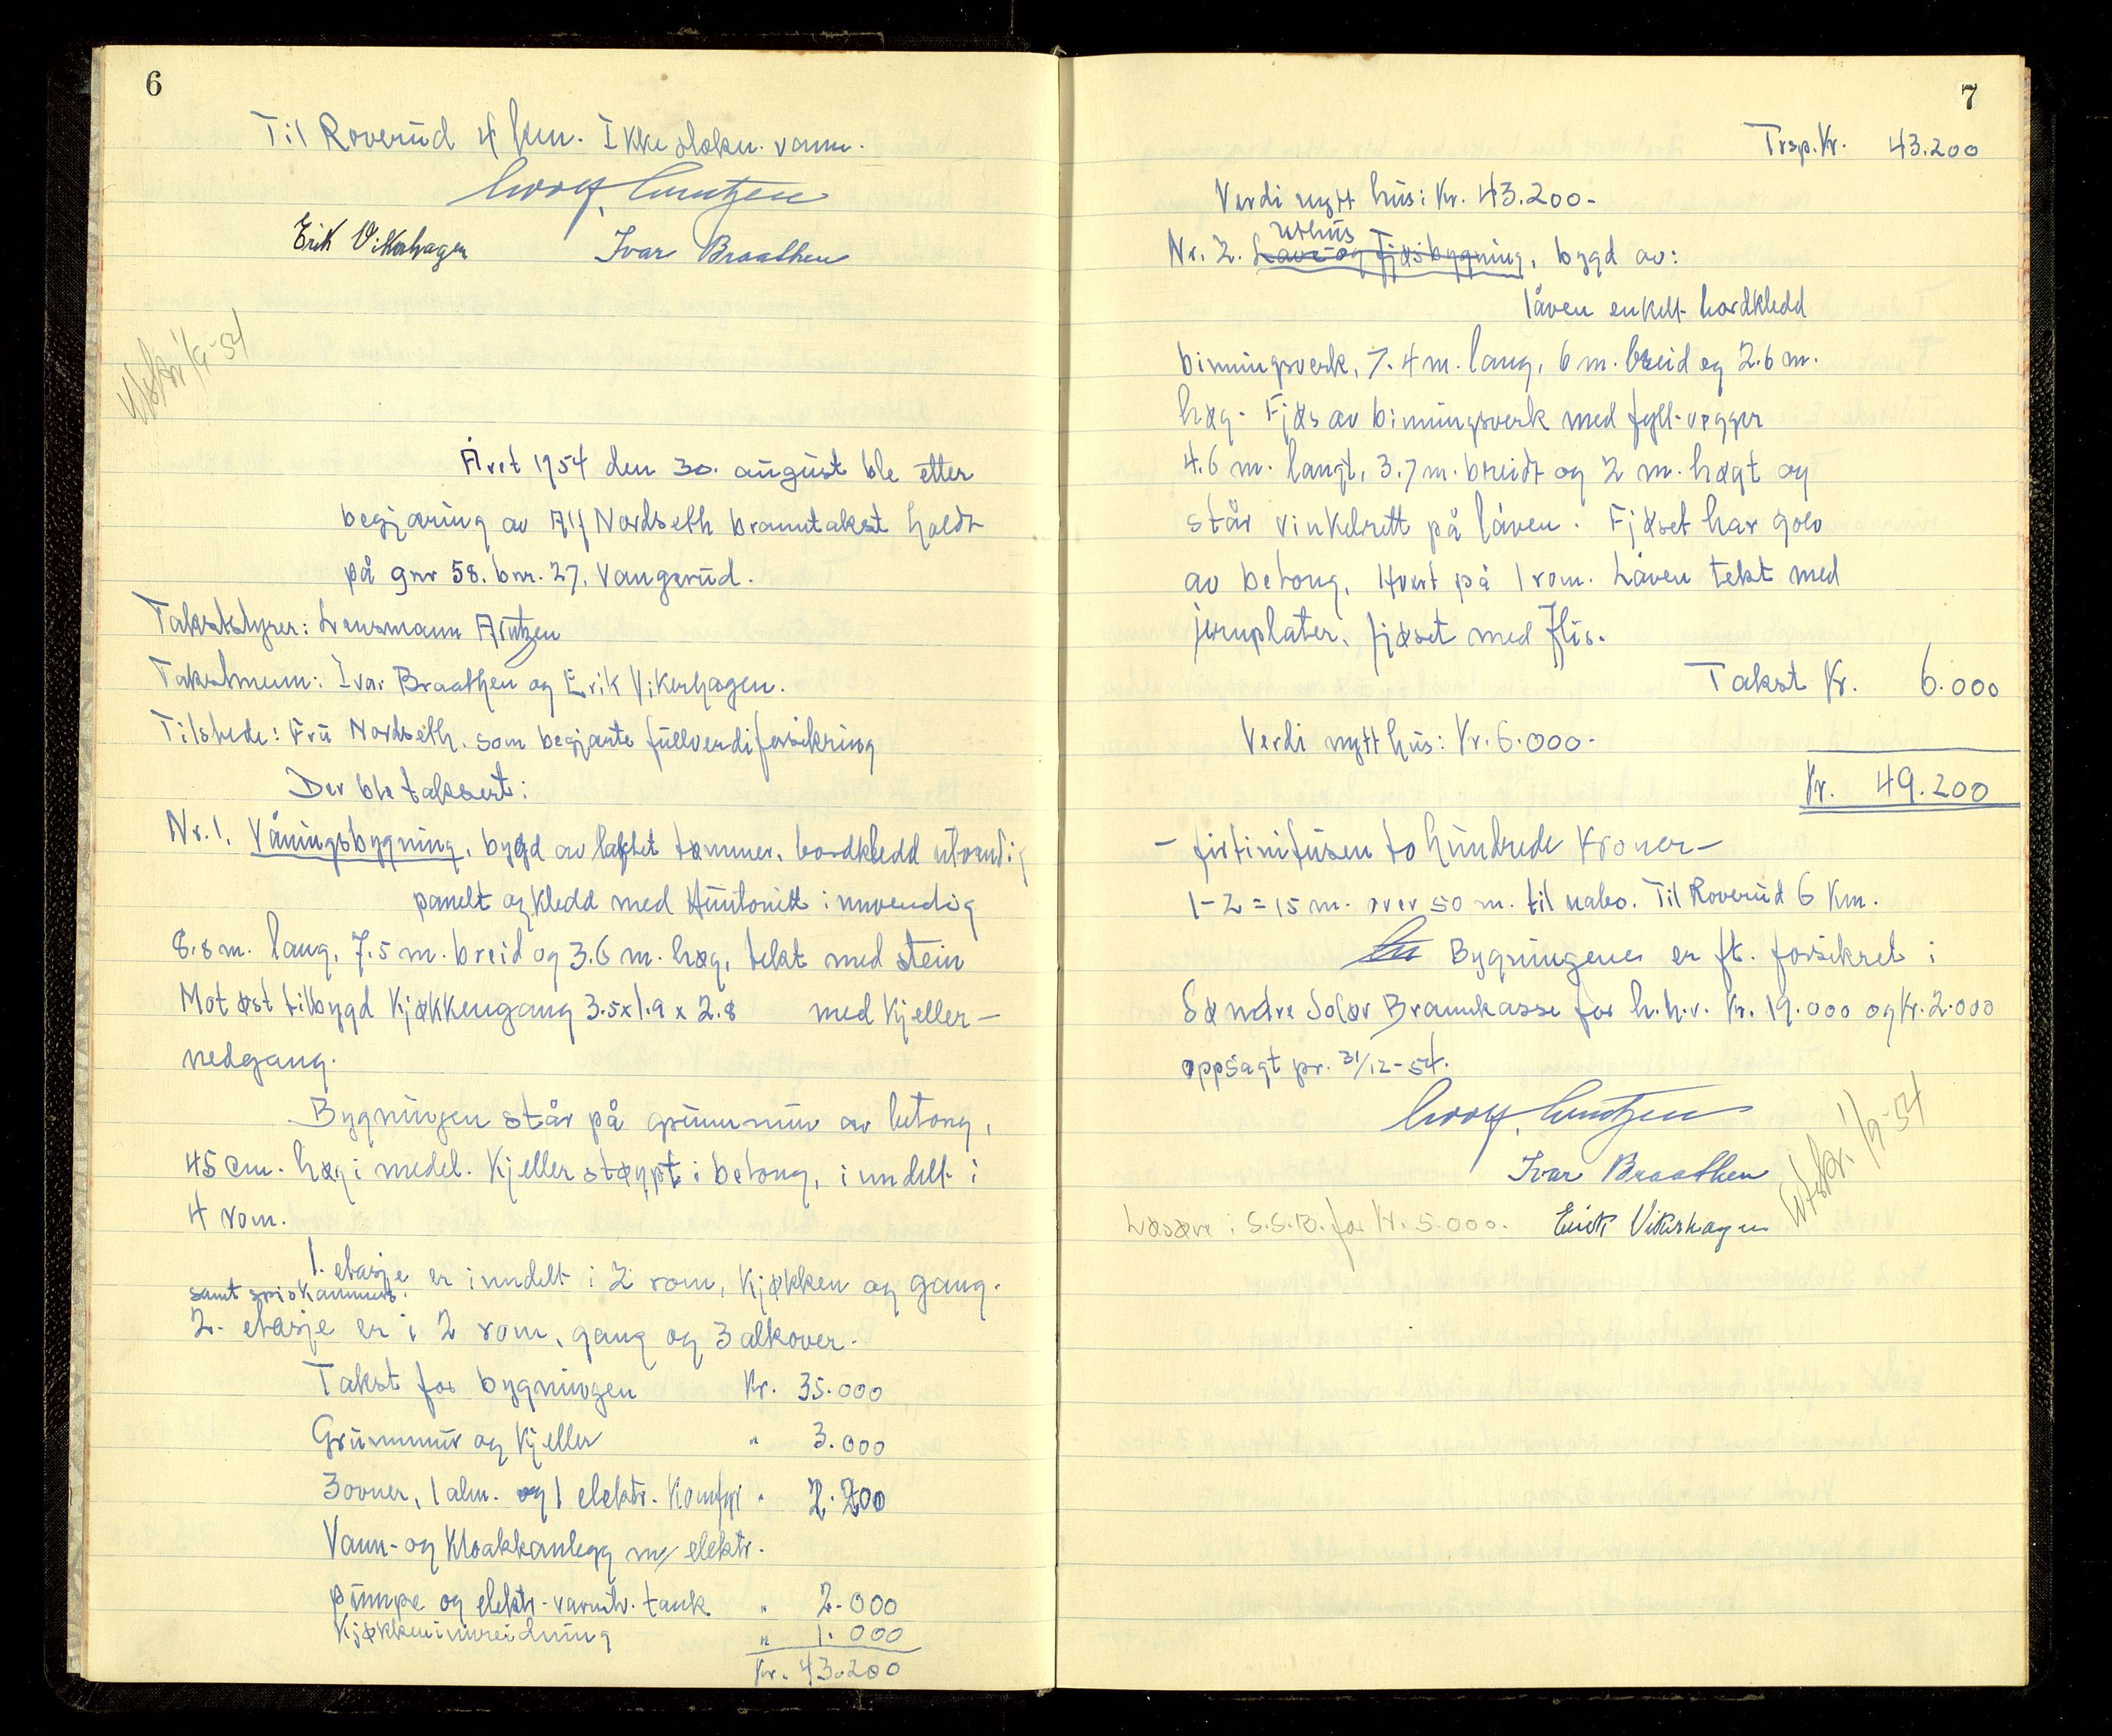 6
Til Roverud 4 km. Ikke slokn. vann.
Erik Vikerhagen Ivar Braathen
Utskr. 1/9-54
Året 1954 den 30. august ble etter
begjæring av Alf Nordseth branntakst holdt
på gnr 58. bnr. 27, Vangerud.
Takststyrer: Lensmann Arntzen
Takstmenn: Ivar Braathen og Erik Vikerhagen.
Tilstede: Fru Nordseth, som begjærte fullverdiforsikring
Der ble taksert:
Nr. 1. Våningsbygning, bygd av laftet tømmer, bordkledd utvendig
panelt og kledd med Huntonitt innvendig
8.8 m. lang, 7.5 m. breid og 3.6 m. høg, tekt med stein
Mot øst tilbygd kjøkkengang 3.5x1.9 x 2.8 med kjeller-
nedgang.
Bygningen står på grunnmur av betong,
45 cm. høg i medel. Kjeller støypt i betong, inndelt i
4 rom.
1. etasje er inndelt i 2 rom, kjøkken og gang.
samt spiskammers.
2. etasje er i 2 rom, gang og 3 alkover.
Takst for bygningen Kr. 35.000
Grunnmur og kjeller " 3.000
3 ovner, 1 alm. og 1 elektr. komfyr " 2.200
Vann- og kloakkanlegg m/ elektr.
pumpe og elektr. varmtv. tank " 2.000
Kjøkkeninnreidning " 1.000
Kr. 43.200
7
Trsp. Kr. 43.200
Verdi nytt hus: Kr. 43.200-
uthus
Nr. 2. Låve og fjøsbygning, bygd av:
låven enkelt bordkledd
binningsverk, 7.4 m. lang, 6 m. breid og 2.6 m.
høg. Fjøs av binningsverk med fyll-vegger
4.6 m. langt, 3.7 m. breidt og 2 m. høgt og
står vinkelrett på låven. Fjøset har golv
av betong. Hvert på 1 rom. Låven tekt med
jernplater, fjøset med flis.
Takst Kr. 6.000
Verdi nytt hus: Kr. 6.000-
Kr. 49.200
- førtinitusen to hundrede kroner-
1-2 = 15 m. over 50 m. til nabo. Til Roverud 6 km.
Bygningene er ft. forsikret i
Søndre Solør Brannkasse for h.h.v. Kr. 19.000 og Kr. 2.000
oppsagt pr. 31/12-54.
Ivar Braathen
Utskr. 1/9-54
Løsøre i S.S.B. for Kr. 5.000. Erik Vikerhagen